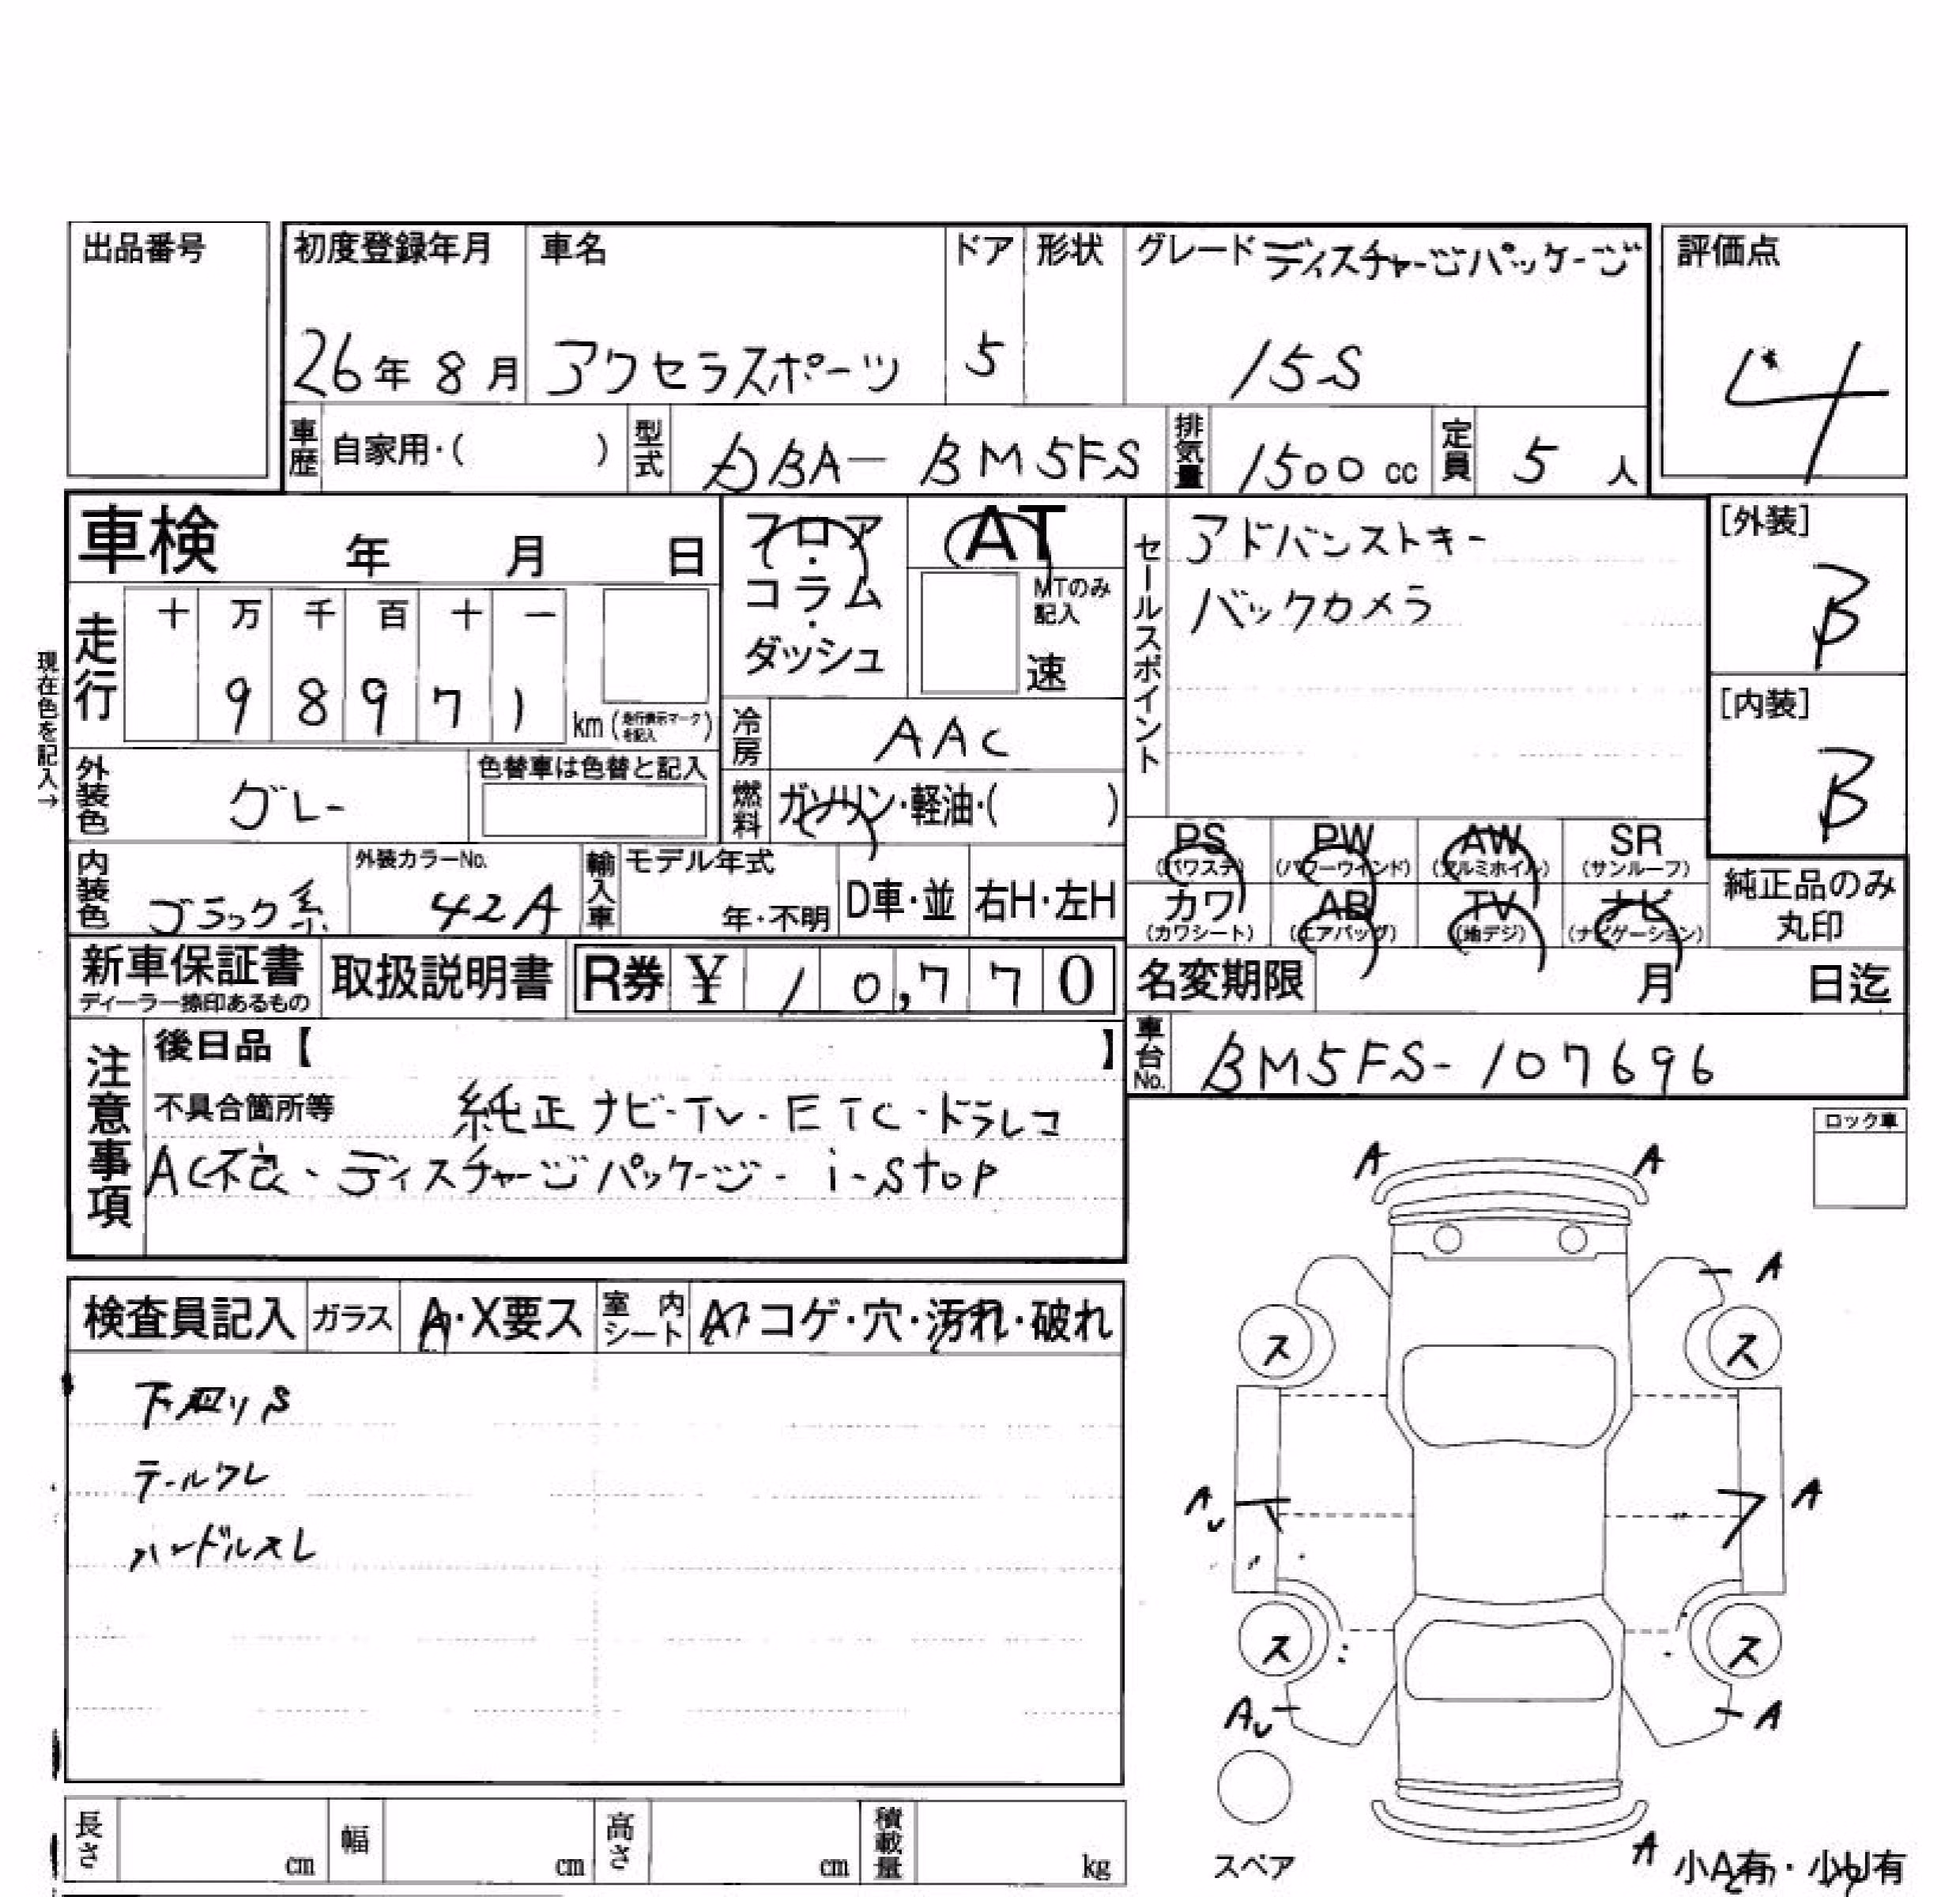 出品番号
初度登録年月 車名 ドア 形状 グレード ディスチャージパッケージ 評価点
26年8月 アクセラスポーツ 5 15S 4
車歴 自家用・( ) 型式 DBA-BM5FS 排気量 1500cc 定員 5人
車検 年 月 日
フロア・コラム・ダッシュ
AT
MTのみ記入
速
セールスポイント
アドバンストキー
バックカメラ
[外装]
B
[内装]
B
現在色を記入→
走行 十 万 千 百 十 一
9 8 9 7 1 km (走行表示マークを記入)
冷房 AAC
外装色 グレー 色替車は色替と記入
燃料 ガソリン・軽油・( )
PS (パワステ) PW (パワーウインド) AW (アルミホイル) SR (サンルーフ)
カワ (カワシート) AB (エアバッグ) TV (地デジ) ナビ (ナビゲーション)
純正品のみ
丸印
内装色 ブラック系 外装カラーNo. 42A 輸入車 モデル年式 年・不明 D車・並 右H・左H
新車保証書 取扱説明書 R券 ¥ 10,770
ディーラー捺印あるもの
名変期限 月 日迄
車台No. BM5FS-107696
注意事項
後日品【 】
不具合箇所等 純正ナビ・TV・ETC・ドラレコ
AC不良、ディスチャージパッケージ・i-stop
ロック車
検査員記入 ガラス A・X要ス 室内シート コゲ・穴・汚れ・破れ
下回りS
テールワレ
ハンドルスレ
A A
A
ス ス
A A
U
ス ス
AU A
スペア
A 小A有・小U有
長さ cm 幅 cm 高さ cm 積載量 kg